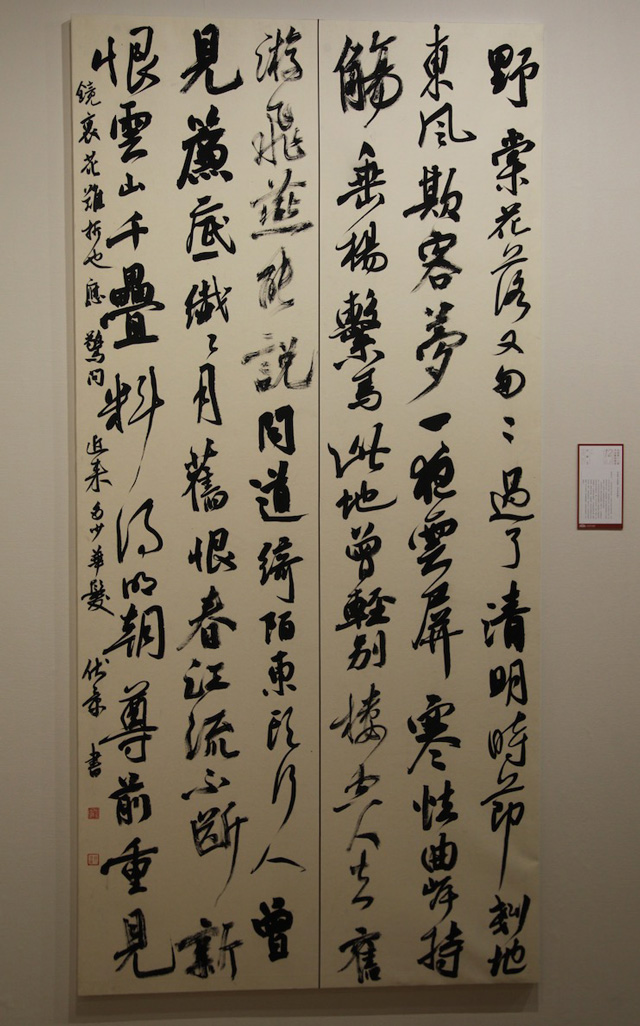 野棠花落又匆〻過了清明時節剗地
東風欺客夢一夜雲屏寒怯曲岸持
觴垂楊繫馬此地曾輕別樓空人去舊
游飛燕能說聞道綺陌東頭行人曾
見簾底纖〻月舊恨春江流不斷新
恨雲山千疊料得明朝尊前重見
鏡裏花難折也應驚問近來多少華髮 書